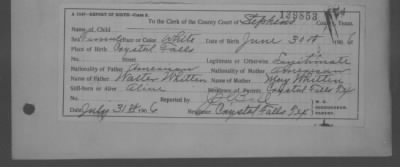 A 1347—REPORT OF BIRTH—Class 3. 139553
To the Clerk of the County Court of Stephens County, Texas.
Name of Child
Sex Race or Color White Date of Birth June 30th, 1906
Place of Birth Crystal Falls
No. Street Legitimate or Otherwise Legitimate
Nationality of Father American Nationality of Mother American
Name of Father Walter Whitten Name of Mother May Whitten
Still-born or Alive Alive Residence of Parents Crystal Falls Tex
No. Reported by
Date July 31st 1906 Residence Crystal Falls Tex